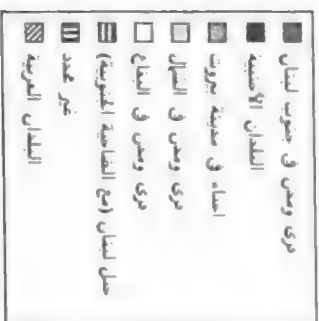 قرى ومدن في جنوب لبنان
البلدان الأجنبية
أحياء في مدينة بيروت
قرى ومدن في الشمال
قرى ومدن في البقاع
جبل لبنان (مع الضاحية الجنوبية)
غير محدد
البلدان العربية